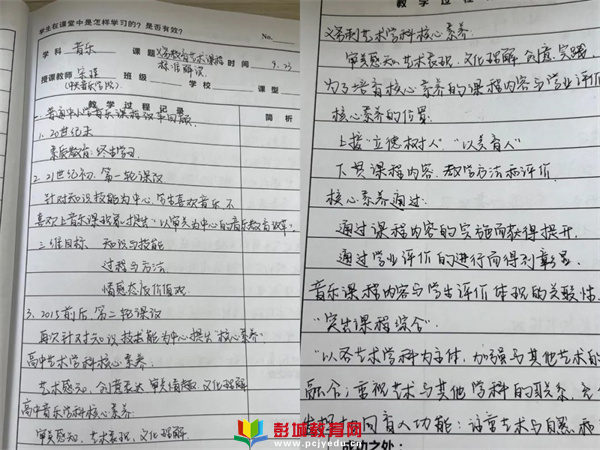 学生在课堂中是怎样学习的？是否有效？
No.
学科 音乐 课题 义务教育艺术课程标准解读 时间 9.23
授课教师 班级 学校 课型
(中央音乐学院)
教学过程记录 简析
一、普通中小学音乐课程改革回顾
1. 20世纪末
素质教育
2. 21世纪初 第一轮课改
针对知识技能为中心,学生喜欢音乐,不
喜欢上音乐课现象,提出"以审美为中心的音乐教育改革"。
三维目标 知识与技能
过程与方法
情感态度价值观
3. 2015前后 第二轮课改
再次针对知识技能为中心提出"核心素养"
高中艺术学科核心素养
艺术感知、创意表达、审美情趣、文化理解
高中音乐学科核心素养
审美感知、艺术表现、文化理解
教学过程
义务制艺术学科核心素养
审美感知、艺术表现、文化理解、创意实践
为了培育核心素养的课程内容与学业评价
核心素养的位置
上接"立德树人""以美育人"
下贯课程内容、教学方法和评价
核心素养通过:
通过课程内容的实施而获得提升
通过学业评价的进行而得到彰显
音乐课程内容与学生评价体现的关联性
"突出课程综合"
"以各艺术学科为主体,加强与其他艺术的
融合;重视艺术与其他学科的联系,充
协同育人功能;注重艺术与自然、
成功之处:
彭城教育网
www.pcjyedu.cn